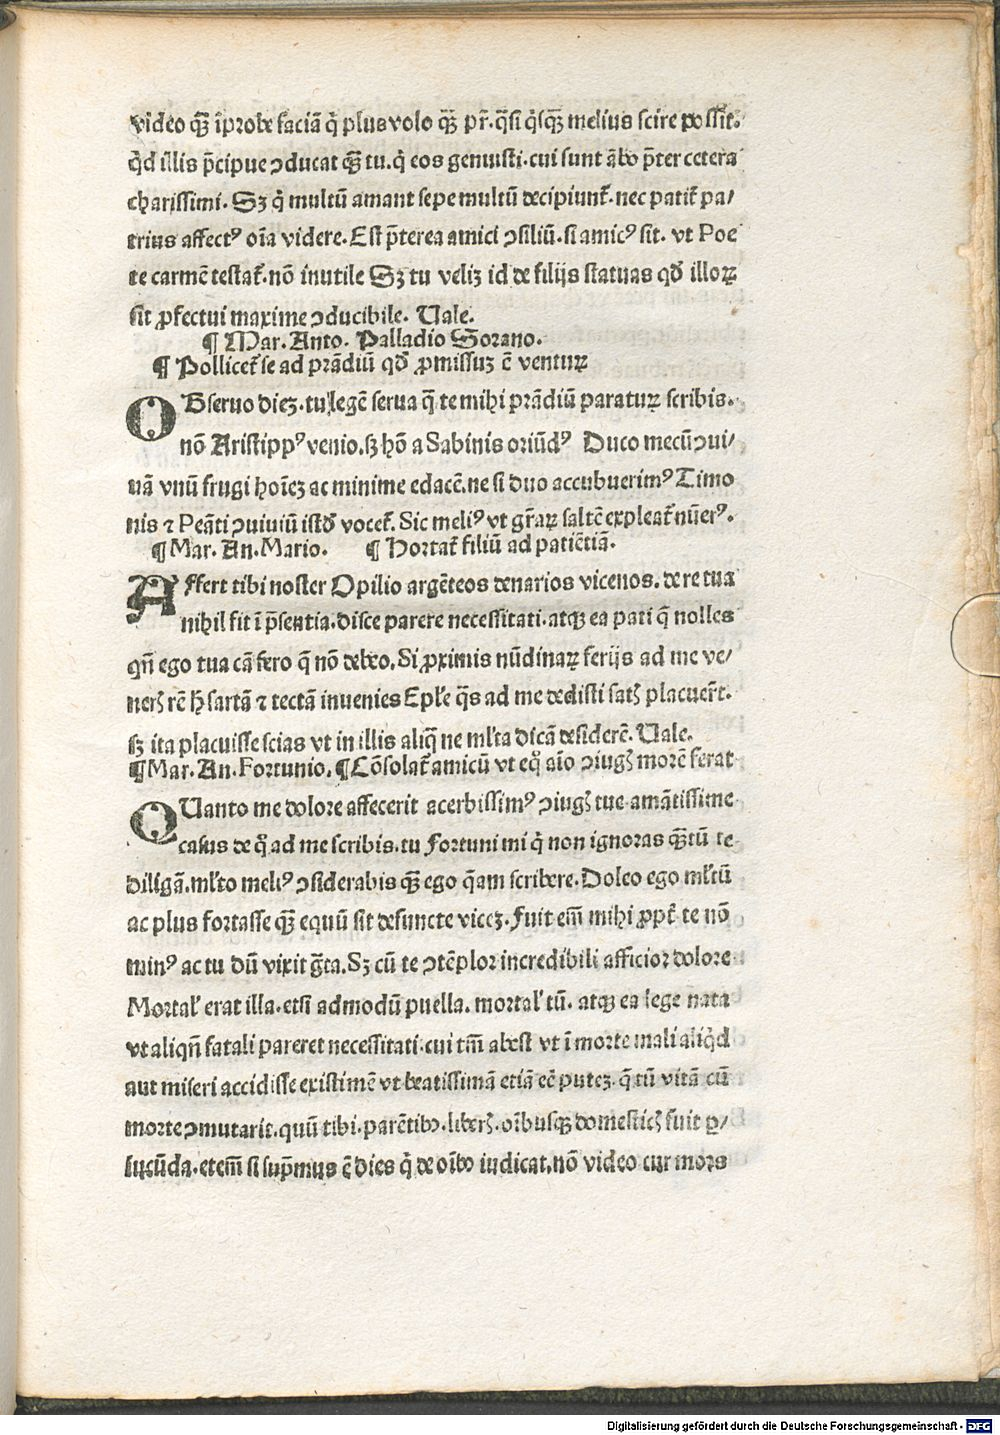 video qꝫ̃ īprobe faciā q̇ plus volo qꝫ̃ pr̄. q̄si q̇sqꝫ̃ melius scire possit.
q̇d illis p̄cipue ꝯducat qꝫ̃ tu. q̇ eos genuisti. cui sunt ābo p̄ter cetera
charissimi. Sꝫ q̇ multū amant sepe multū decipiunt᷑. nec patit᷑ pa/
trius affectꝰ oīa videre. Est p̄terea amici ꝯsiliū. si amicꝰ sit. vt Poe
te carmē testat᷑. nō inutile Sꝫ tu veliꝫ id de filijs statuas qd̛ illoꝝ
sit ꝓfectui maxime ꝯducibile. Uale.
¶ Mar. Anto. Palladio Sorano.
¶ Pollicet᷑ se ad prādiū qd̛ ꝓmissuꝫ ē venturꝝ
OBseruo dieꝫ. tu legē serua q̄ te mihi prādiū paraturꝝ scribis.
nō Aristippꝰ venio. sꝫ hō a Sabinis oriūdꝰ Duco mecū ꝯui/
uā vnū frugi hoīeꝫ ac minime edacē. ne si duo accubuerimꝰ Timo
nis ⁊ Peāti ꝯuiuiū istd̛ vocet᷑. Sic meliꝰ vt gr̄aꝝ saltē expleat᷑ nūerꝰ.
¶ Mar. An. Mario. ¶ Hortat᷑ filiū ad patiētiā.
AFfert tibi noster Opilio argēteos denarios vicenos. de re tua
nihil fit ī p̄sentia. disce parere necessitati. atqꝫ ea pati q̄ nolles
qn̄ ego tua cā fero q̄ nō debeo. Si ꝓximis nūdinaꝝ ferijs ad me ve/
neris rē h̄ sartā ⁊ tectā inuenies Epl̄e q̄s ad me dedisti satis placuer̄t.
sꝫ ita placuisse scias vt in illis aliq̄ ne ml̄ta dicā desiderē. Uale.
¶ Mar. An. Fortunio. ¶ Cōsolat᷑ amicū vt eq̊ aīo ꝯiugis morē ferat
QUanto me dolore affecerit acerbissimꝰ ꝯiugis tue amātissime
casus de q̊ ad me scribis. tu Fortuni mi q̇ non ignoras qꝫ̃tū te
diligā. ml̄to meliꝰ ꝯsiderabis qꝫ̃ ego q̄am scribere. Doleo ego ml̄tū
ac plus fortasse qꝫ̃ equū sit defuncte viceꝫ. Fuit em̄ mihi ꝓpt᷑ te nō
minꝰ ac tu dū vixit gr̄ta. Sꝫ cū te ꝯtēplor incredibili afficior dolore
Mortal' erat illa. etsi admodū puella. mortal' tū. atqꝫ ea lege nata
vt aliqn̄ fatali pareret necessitati. cui tm̄ abest vt ī morte mali aliq̇d
aut miseri accidisse existimē vt beatissimā etiā ee᷑ puteꝫ. q̄ tū vitā cū
morte ꝯmutarit. quū tibi. parētibꝰ. liberis. oībusqꝫ domesticis fuit ꝑ/
iucūda. etem̄ si sup̄mus ē dies q̇ de oībo iudicat. nō video cur mors
Digitalisierung gefördert durch die Deutsche Forschungsgemeinschaft - DFG